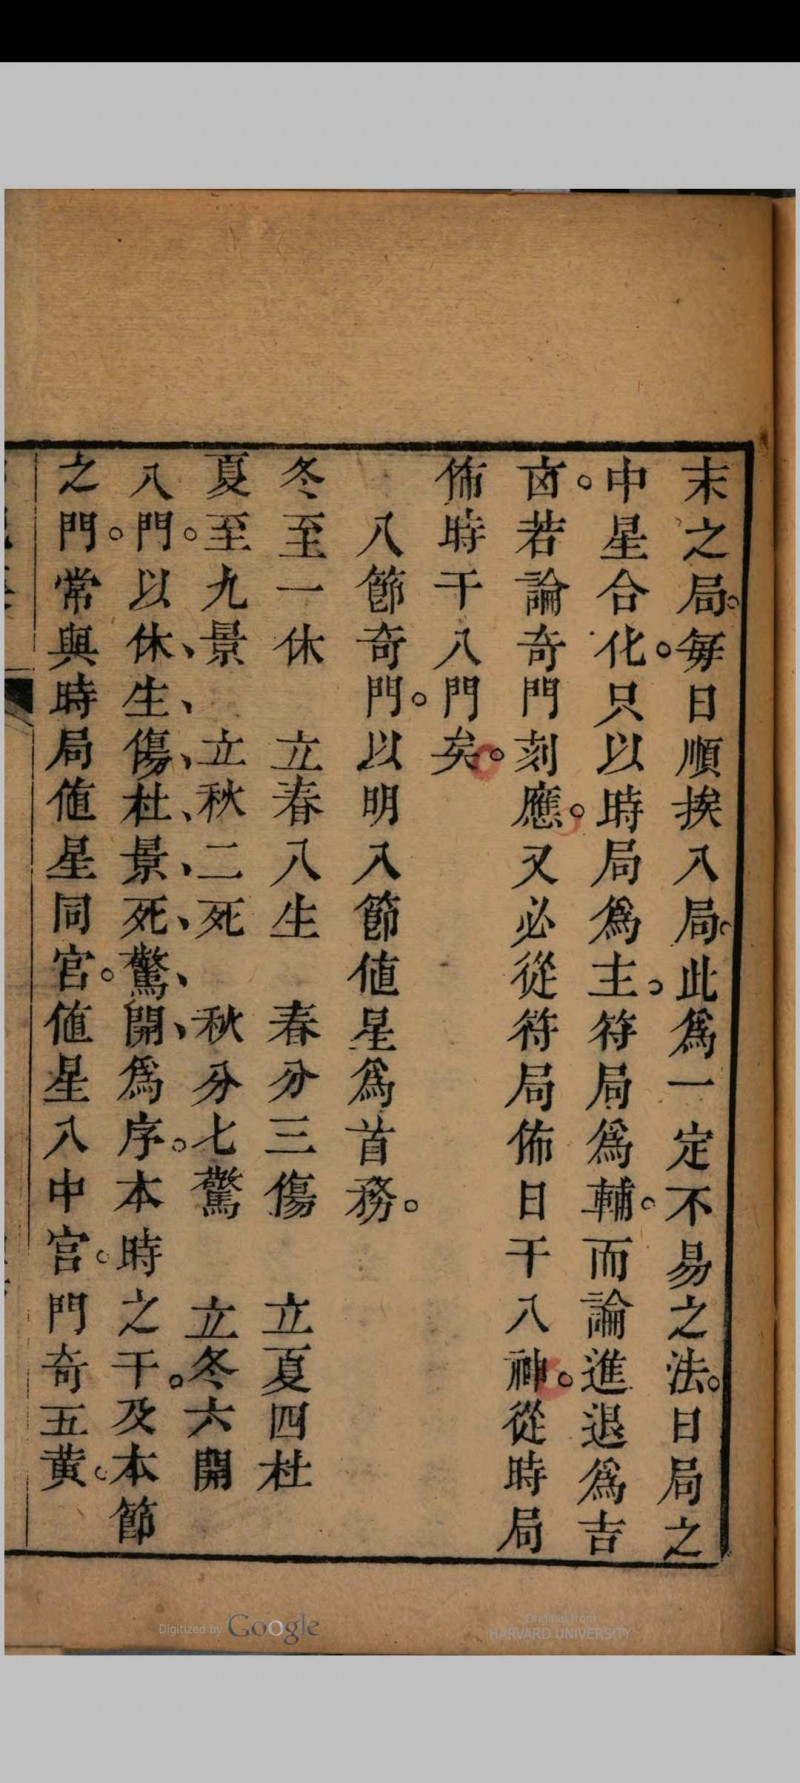 末之局。每日順挨入局。此爲一定不易之法。日局之
中星合化。只以時局爲主。符局爲輔。而論進退爲吉
卤。若論奇門刻應。又必從符局佈日干八神。從時局
佈時干八門矣。
八節奇門。以明入節値星爲首務。
冬至一休 立春八生 春分三傷 立夏四杜
夏至九景 立秋二死 秋分七驚 立冬六開
八門。以休、生、傷、杜、景、死、驚、開、爲序。本時之干。及本節
之門。常與時局値星同宮。値星入中宮。門奇五黄。
Digitized by Google
Original from
HARVARD UNIVERSITY